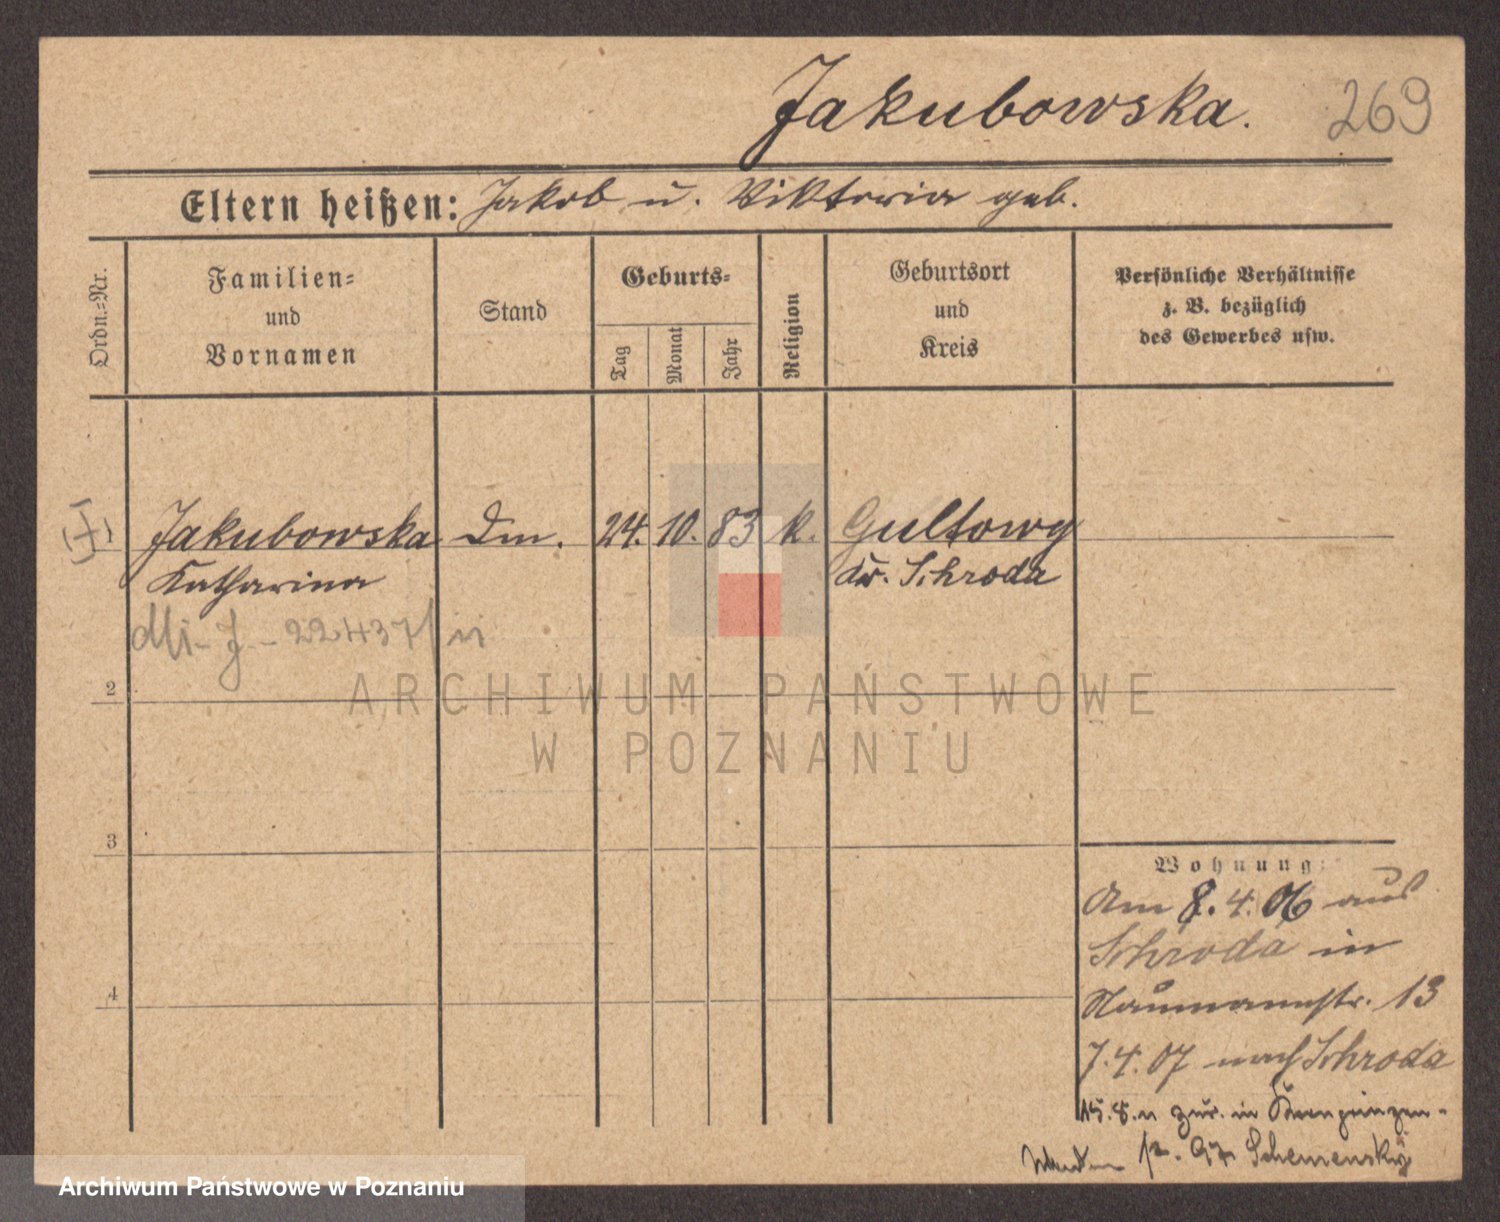 Jakubowska.
269
Eltern heißen: Jakob u. Viktoria geb.
Ordn.-Nr.
Familien-
und
Vornamen
Stand
Geburts-
Tag
Monat
Jahr
Religion
Geburtsort
und
Kreis
Persönliche Verhältnisse
z. B. bezüglich
des Gewerbes usw.
Jakubowska Dm. 24. 10. 83 k. Gultowy
Katharina
Kr. Schroda
22437
2
ARCHIWUM PAŃSTWOWE
W POZNANIU
3
Wohnung:
Am 8. 4. 06 aus
Schroda in
Naumannstr. 13
4
7. 4. 07 nach Schroda
15. 8. 11 zur. in Kronprinzen-
Schemensky
Archiwum Państwowe w Poznaniu